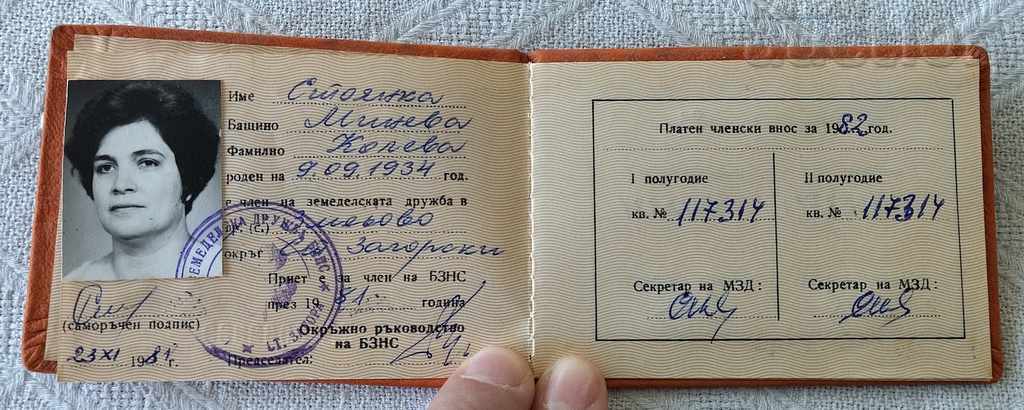 Име Стоянка
Бащино Минева
Фамилно Колева
роден на 9.09.1934 год.
е член на земеделската дружба в
гр. (с.)
окръг Ст. Загорски
Приет е за член на БЗНС
през 1981 година
Окръжно ръководство
на БЗНС
Председател:
(саморъчен подпис)
23 XI 1981 г.
ЗЕМЕДЕЛСКА ДРУЖБА БЗНС
СТ. ЗАГОРА
Платен членски внос за 1982 год.
I полугодие
кв. № 117314
Секретар на МЗД:
II полугодие
кв. № 117314
Секретар на МЗД: